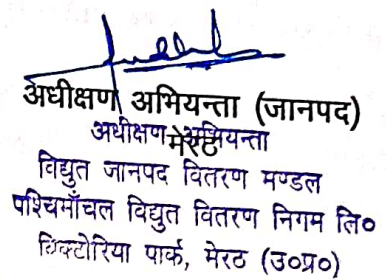 अधीक्षण अभियन्ता (जानपद)
मेरठ
अधीक्षण अभियन्ता
विद्युत जानपद वितरण मण्डल
पश्चिमाँचल विद्युत वितरण निगम लि०
विक्टोरिया पार्क, मेरठ (उ०प्र०)